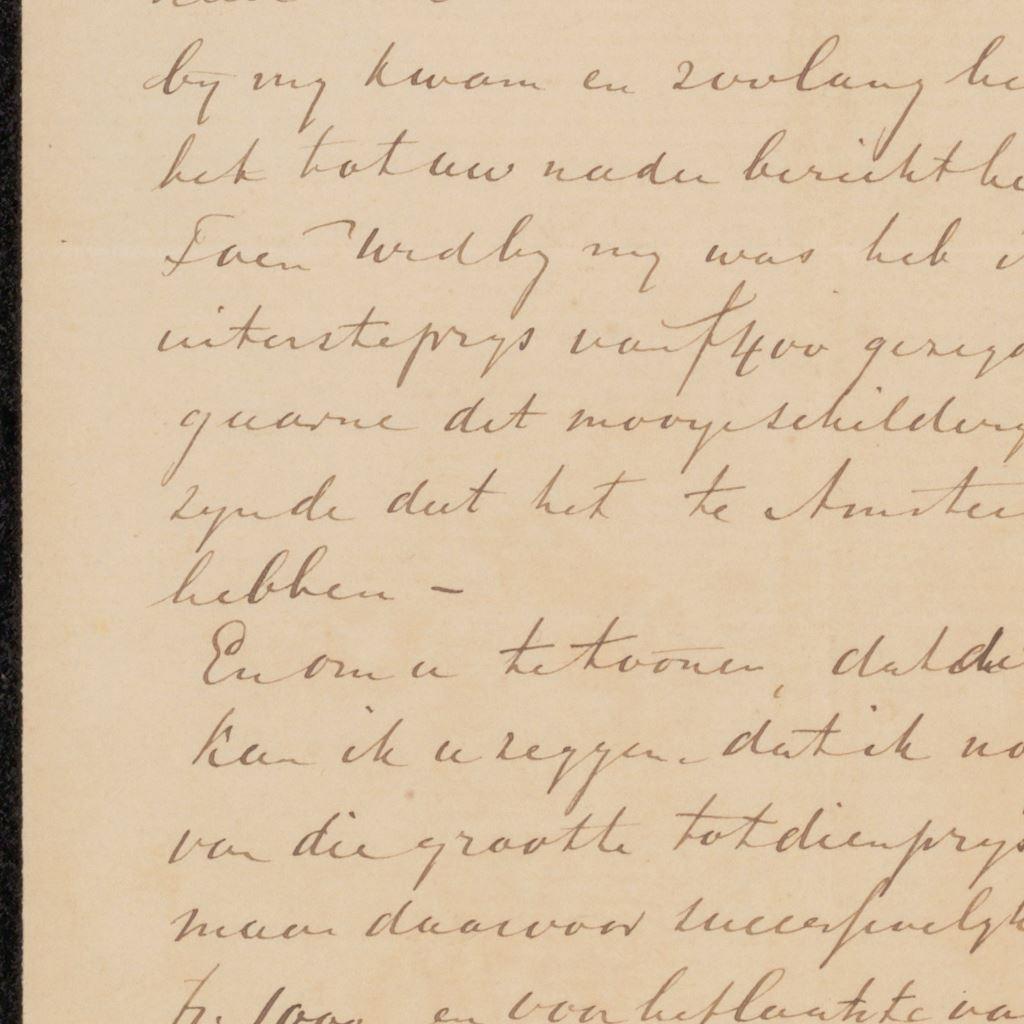 by my kwam en zoolang he
het tot uw nader bericht he
Toen Wed by my was heb i
uiterste prys van f 400 gezegd
gaarne dit mooye schildery
zynde dat het te Amster
hebben –
En om u te toonen, dat de
kan ik u zeggen dat ik no
van die grootte tot dien prys
maar daarvoor successivelyk
fr. 1000 en voor het laatste va